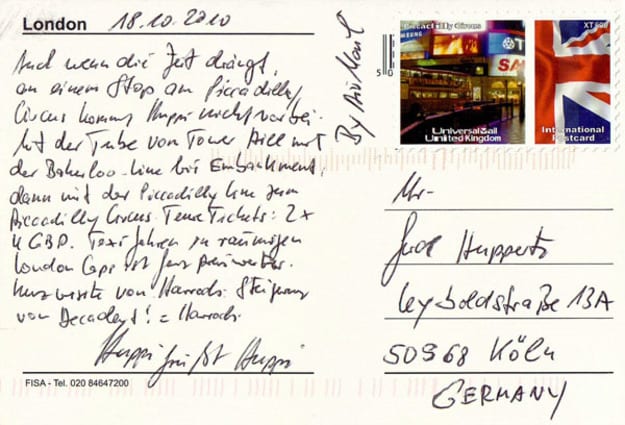 London 18.10.2010
Auch wenn die Zeit drängt,
an einem Stop am Piccadilly
Circus kommt Huppi nicht vorbei.
Mit der Tube von Tower Hill mit
der Bakerloo-Line bis Embankment,
dann mit der Piccadilly Line zum
Piccadilly Circus. Teure Tickets: 2x
4 GBP. Taxi fahren in räumigen
London Caps ist fast preiswerter.
Kurzvisite von Harrods. Steigerung
von Decadent! = Harrods.
Huppi grüßt Huppi
FISA - Tel. 020 84647200
By Air Mail
Piccadilly Circus
SAMSUNG
SA
Universal Mail
United Kingdom
International
Postcard
Mr.
Huppertz
Leyboldstraße 13A
50968 Köln
GERMANY